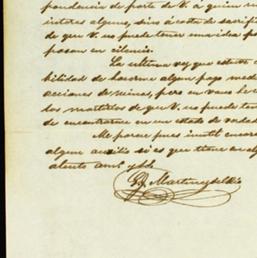 pondencia de parte de V. á quien
interes alguno, sino á costa de sacrifi
de que V. no puede tener una idea
pasan en silencio.
La ultima vez, que estuve
bilidad de hacerme algun pago med
acciones de minas, pero en vano
los martirios de que V. no puede ten
de encontrarme en un estado de
Me parece pues inutil
algun auxilio si es que tiene
atento am.
Martinez del Rio